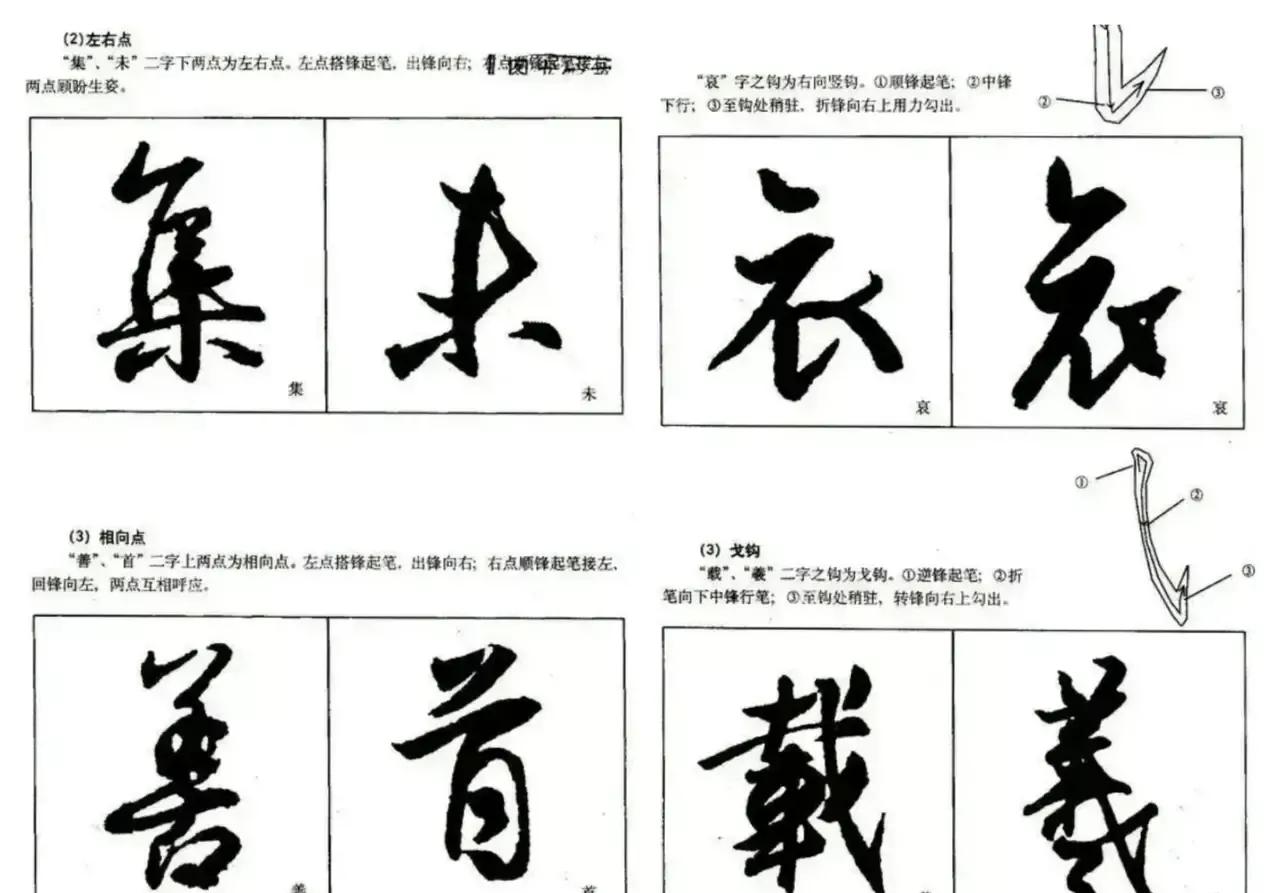 (2)左右点
“集”、“未”二字下两点为左右点。左点搭锋起笔，出锋向右；右点顺锋起笔接左，
两点顾盼生姿。
集
未
集
未
(3) 相向点
“善”、“首”二字上两点为相向点。左点搭锋起笔，出锋向右；右点顺锋起笔接左，
回锋向左，两点互相呼应。
善
首
善
首
“哀”字之钩为右向竖钩。①顺锋起笔；②中锋
下行；③至钩处稍驻，折锋向右上用力勾出。
②
③
哀
哀
哀
哀
(3) 戈钩
“载”、“羲”二字之钩为戈钩。①逆锋起笔；②折
笔向下中锋行笔；③至钩处稍驻，转锋向右上勾出。
①
②
③
載
羲